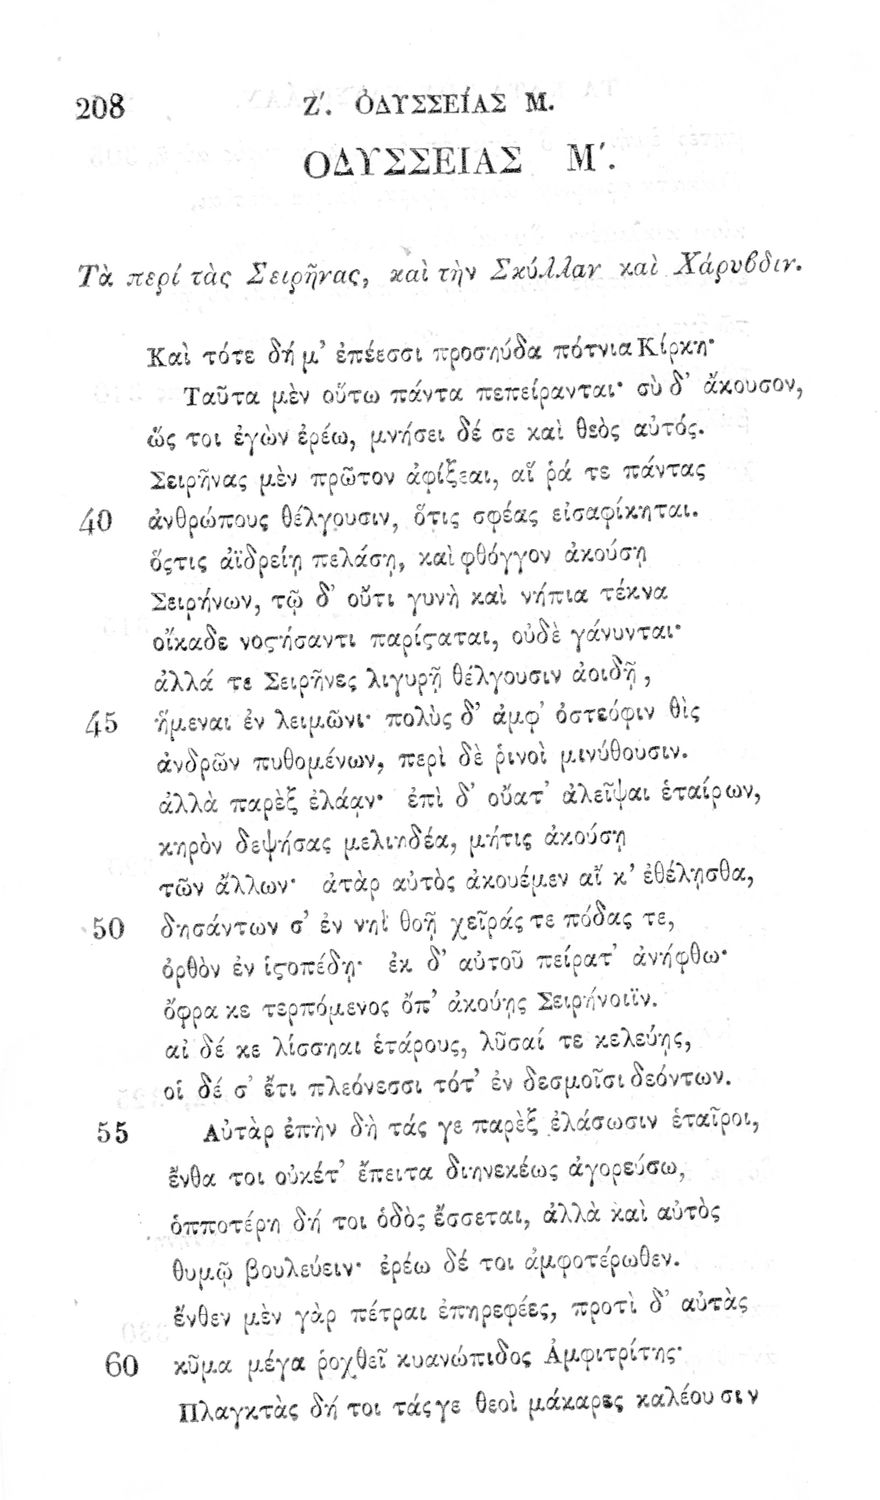 208 Ζ'. ὈΔΥΣΣΕΊΑΣ Μ.
ΟΔΥΣΣΕΙΑΣ Μ'.
Τὰ περί τὰς Σειρῆνας, καὶ τὴν Σκύλλαν καὶ Χάρυβδιν.
Καὶ τότε δή μ' ἐπέεσσι προσηύδα πότνια Κίρκη·
Ταῦτα μὲν οὕτω πάντα πεπείρανται· σὺ δ' ἄκουσον,
ὥς τοι ἐγὼν ἐρέω, μνήσει δέ σε καὶ θεὸς αὐτός.
Σειρῆνας μὲν πρῶτον ἀφίξεαι, αἵ ῥά τε πάντας
40 ἀνθρώπους θέλγουσιν, ὅτις σφέας εἰσαφίκηται.
ὅςτις ἀϊδρείῃ πελάσῃ, καὶ φθόγγον ἀκούσῃ
Σειρήνων, τῷ δ' οὔτι γυνὴ καὶ νήπια τέκνα
οἴκαδε νοςήσαντι παρίςαται, οὐδὲ γάνυνται·
ἀλλά τε Σειρῆνες λιγυρῇ θέλγουσιν ἀοιδῇ,
45 ἥμεναι ἐν λειμῶνι· πολὺς δ' ἀμφ' ὀστεόφιν θὶς
ἀνδρῶν πυθομένων, περὶ δὲ ῥινοὶ μινύθουσιν.
ἀλλὰ παρὲξ ἐλάᾳν· ἐπὶ δ' οὔατ' ἀλεῖψαι ἑταίρων,
κηρὸν δεψήσας μελιηδέα, μήτις ἀκούσῃ
τῶν ἄλλων· ἀτὰρ αὐτὸς ἀκουέμεν αἴ κ' ἐθέλῃσθα,
50 δησάντων σ' ἐν νηῒ θοῇ χεῖράς τε πόδας τε,
ὀρθὸν ἐν ἱςοπέδῃ· ἐκ δ' αὐτοῦ πείρατ' ἀνήφθω·
ὄφρα κε τερπόμενος ὄπ' ἀκούῃς Σειρήνοιϊν.
αἰ δέ κε λίσσηαι ἑτάρους, λῦσαί τε κελεύῃς,
οἱ δέ σ' ἔτι πλεόνεσσι τότ' ἐν δεσμοῖσι δεόντων.
55 Αὐτὰρ ἐπὴν δὴ τάς γε παρὲξ ἐλάσωσιν ἑταῖροι,
ἔνθα τοι οὐκέτ' ἔπειτα διηνεκέως ἀγορεύσω,
ὁπποτέρη δή τοι ὁδὸς ἔσσεται, ἀλλὰ καὶ αὐτὸς
θυμῷ βουλεύειν· ἐρέω δέ τοι ἀμφοτέρωθεν.
ἔνθεν μὲν γὰρ πέτραι ἐπηρεφέες, προτὶ δ' αὐτὰς
60 κῦμα μέγα ῥοχθεῖ κυανώπιδος Ἀμφιτρίτης·
Πλαγκτὰς δή τοι τάς γε θεοὶ μάκαρες καλέουσιν